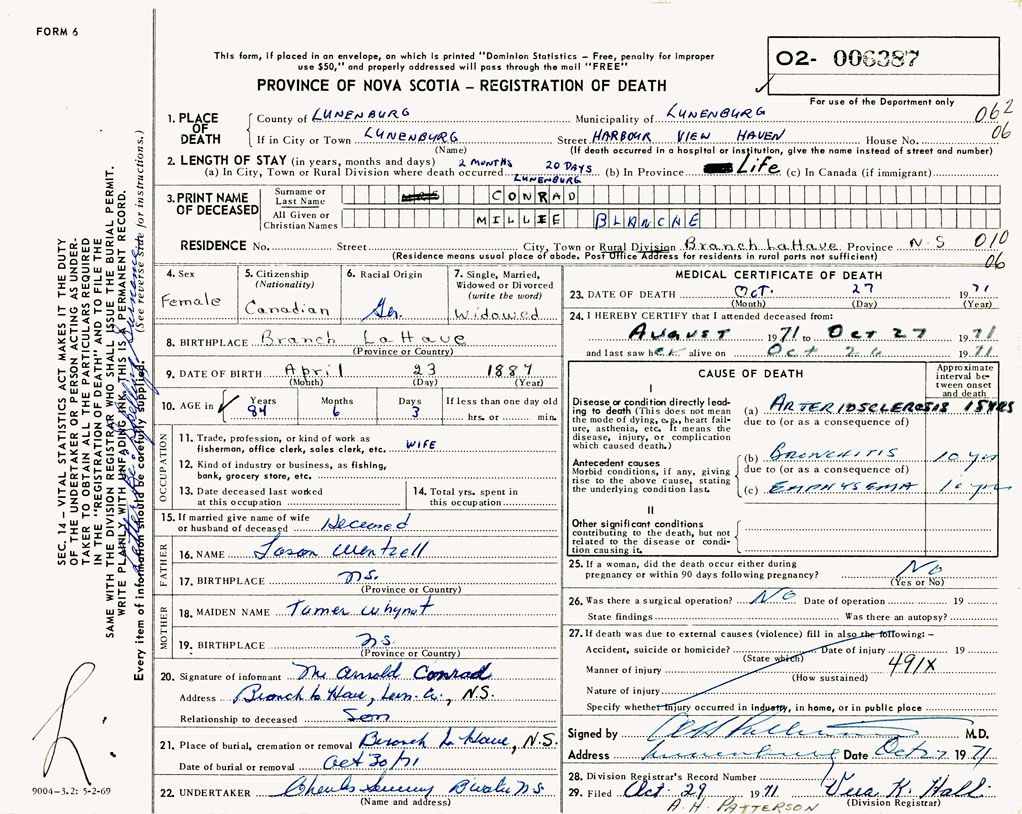 FORM 6
This form, if placed in an envelope, on which is printed "Dominion Statistics – Free, penalty for improper
use $50," and properly addressed will pass through the mail "FREE"
PROVINCE OF NOVA SCOTIA – REGISTRATION OF DEATH
02- 006387
For use of the Department only
1. PLACE OF DEATH
County of LUNENBURG Municipality of LUNENBURG 062
If in City or Town LUNENBURG Street HARBOUR VIEW HAVEN House No. 06
(Name) (If death occurred in a hospital or institution, give the name instead of street and number)
2. LENGTH OF STAY (in years, months and days) 2 MONTHS 20 DAYS
(a) In City, Town or Rural Division where death occurred LUNENBURG (b) In Province Life (c) In Canada (if immigrant)
3. PRINT NAME OF DECEASED
Surname or Last Name CONRAD
All Given or Christian Names MILLIE BLANCHE
RESIDENCE No. Street City, Town or Rural Division Branch LaHave Province N.S 010
(Residence means usual place of abode. Post Office Address for residents in rural parts not sufficient) 06
4. Sex Female
5. Citizenship (Nationality) Canadian
6. Racial Origin Ger.
7. Single, Married, Widowed or Divorced (write the word) Widowed
8. BIRTHPLACE Branch LaHave
(Province or Country)
9. DATE OF BIRTH April 23 1887
(Month) (Day) (Year)
10. AGE in Years 84 Months 6 Days 3 If less than one day old hrs. or min.
OCCUPATION
11. Trade, profession, or kind of work as
fisherman, office clerk, sales clerk, etc. WIFE
12. Kind of industry or business, as fishing,
bank, grocery store, etc.
13. Date deceased last worked
at this occupation
14. Total yrs. spent in
this occupation
15. If married give name of wife
or husband of deceased Deceased
FATHER
16. NAME Jason Wentzell
17. BIRTHPLACE NS.
(Province or Country)
MOTHER
18. MAIDEN NAME Tamer Whynot
19. BIRTHPLACE NS.
(Province or Country)
20. Signature of informant Mr Arnold Conrad
Address Branch La Have, Lun. Co., N.S.
Relationship to deceased Son
21. Place of burial, cremation or removal Branch La Have, N.S.
Date of burial or removal Oct 30/71
22. UNDERTAKER Charles
(Name and address)
MEDICAL CERTIFICATE OF DEATH
23. DATE OF DEATH Oct. 27 1971
(Month) (Day) (Year)
24. I HEREBY CERTIFY that I attended deceased from:
AUGUST 1971 to OCT 27 1971
and last saw her alive on Oct 26 1971
CAUSE OF DEATH
Approximate interval between onset and death
I
Disease or condition directly leading to death (This does not mean the mode of dying, e.g., heart failure, asthenia, etc. It means the disease, injury, or complication which caused death.)
(a) ARTERIOSCLEROSIS 15 YRS
due to (or as a consequence of)
Antecedent causes
Morbid conditions, if any, giving rise to the above cause, stating the underlying condition last.
(b) BRONCHITIS 10 yrs
due to (or as a consequence of)
(c) EMPHYSEMA 10 yrs
II
Other significant conditions
contributing to the death, but not
related to the disease or condition causing it.
25. If a woman, did the death occur either during
pregnancy or within 90 days following pregnancy? NO
(Yes or No)
26. Was there a surgical operation? NO Date of operation 19
State findings Was there an autopsy?
27. If death was due to external causes (violence) fill in also the following: –
Accident, suicide or homicide? Date of injury 19
(State which)
Manner of injury 491X
(How sustained)
Nature of injury
Specify whether injury occurred in industry, in home, or in public place
Signed by M.D.
Address Lunenburg Date Oct 1971
28. Division Registrar's Record Number
29. Filed Oct. 29 1971 Vera K. Hall
(Division Registrar)
A.H. PATTERSON
SEC. 14 – VITAL STATISTICS ACT MAKES IT THE DUTY
OF THE UNDERTAKER OR PERSON ACTING AS UNDERTAKER TO OBTAIN ALL THE PARTICULARS REQUIRED
IN THE "REGISTRATION OF DEATH" AND TO FILE THE
SAME WITH THE DIVISION REGISTRAR WHO SHALL ISSUE THE BURIAL PERMIT.
WRITE PLAINLY WITH UNFADING INK, THIS IS A PERMANENT RECORD.
Every item of information should be carefully supplied. (See reverse side for instructions.)
Letter Re: Spelling Surname
9004-3.2: 5-2-69